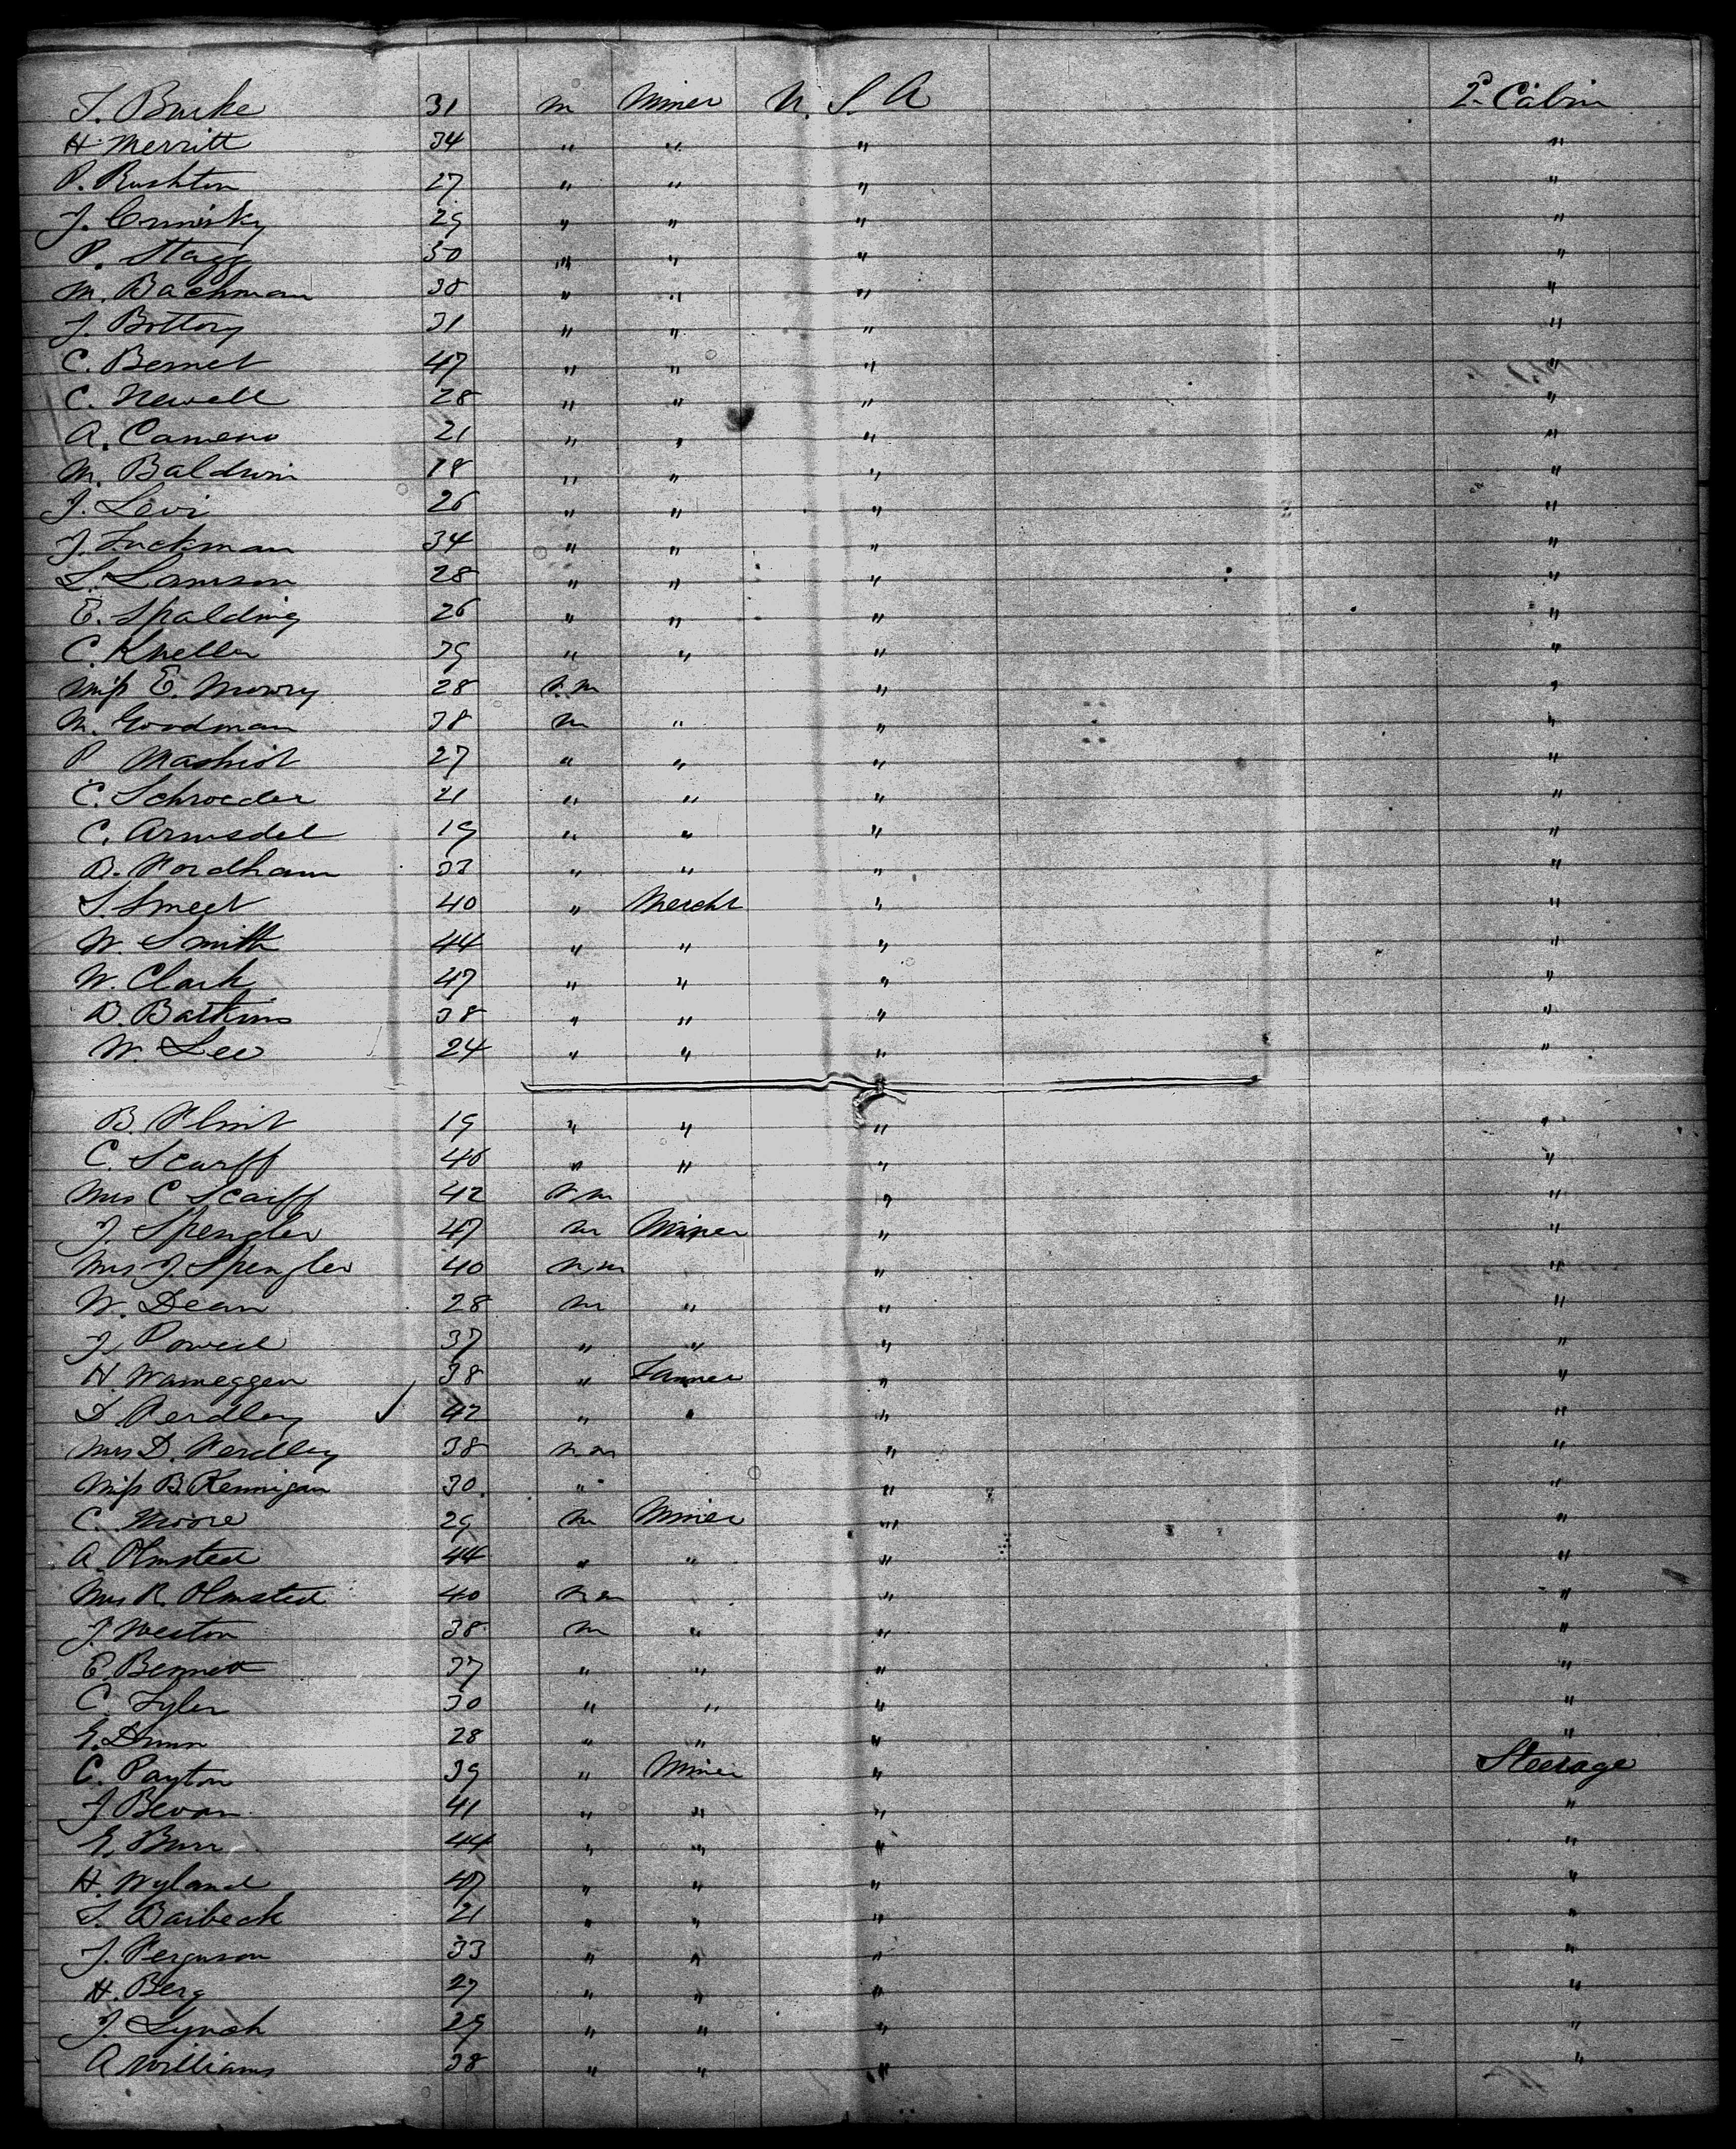 T. Burke 31 m Miner U. S. A 2d Cabin
H. Merritt 34 " " " "
P. Rushton 27 " " " "
J. 29 " " " "
P. Stagg 30 " " " "
M. Bachman 38 " " " "
J. Bottory 31 " " " "
C. Bernet 47 " " " "
C. Newell 28 " " " "
A. Camero 21 " " " "
M. Baldwin 18 " " " "
J. Levi 26 " " " "
J. Luckman 34 " " " "
S. Lamson 28 " " " "
E. Spalding 26 " " " "
C. Kneller 39 " " " "
Miss E. Mowry 28 " "
M. Goodman 38 m " " "
P Mashiot 27 " " " "
C. Schroeder 21 " " " "
C. Armsdel 19 " " " "
B. Fordham 33 " " " "
S. Smeet 40 " Mercht " "
W. Smith 44 " " " "
W. Clark 47 " " " "
B. Batkins 38 " " " "
W. Lee 24 " " " "
B. Flint 19 " " " "
C. Scarff 46 " " " "
Mrs C Scarff 42 " "
J. Spengler 47 m Miner " "
Mrs J. Spengler 40 " "
W. Dean 28 m " " "
J. Powell 37 " " " "
H. Wameggen 38 " Farmer " "
D Ferdley 42 " " " "
Mrs D. Ferdley 38 " "
Miss B. Kennigan 30. " " "
C. Moore 29 m Miner " "
A. Olmsted 44 " " " "
Mrs R. Olmsted 40 " "
J. Weston 38 m " " "
E. Bennett 37 " " " "
C. Tyler 30 " " " "
E. Dunn 28 " " " "
C. Payton 39 " Miner " Steerage
J Bevan 41 " " " "
E. Burr 44 " " " "
H. Wyland 47 " " " "
S. Baibeck 21 " " " "
J. Ferguson 33 " " " "
H. Berg 27 " " " "
J. Lynch 29 " " " "
A Williams 38 " " " "